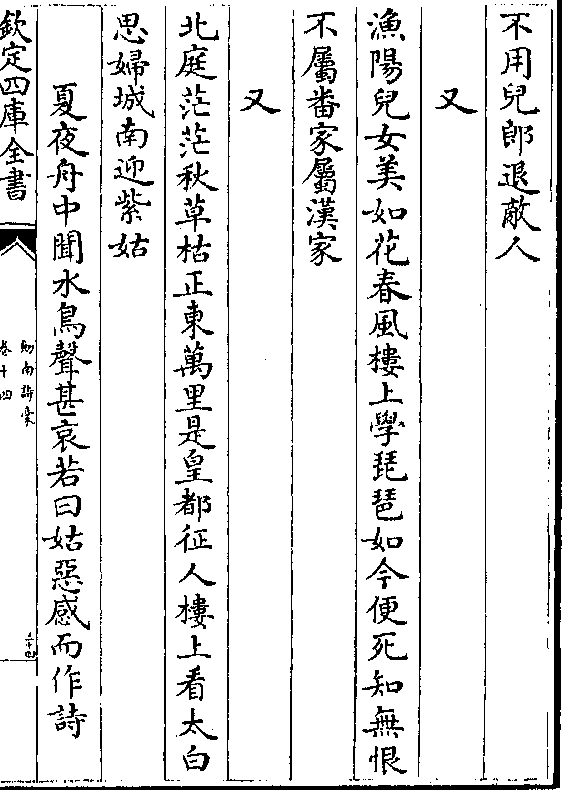 不用兒郎退敵人
又
漁陽兒女美如花春風樓上學琵琶如今便死知無恨
不屬畨家屬漢家
又
北庭茫茫秋草枯正東萬里是皇都征人樓上看太白
思婦城南迎紫姑
夏夜舟中聞水鳥聲甚哀若曰姑惡感而作詩
欽定四庫全書
劎南詩稾
卷十四